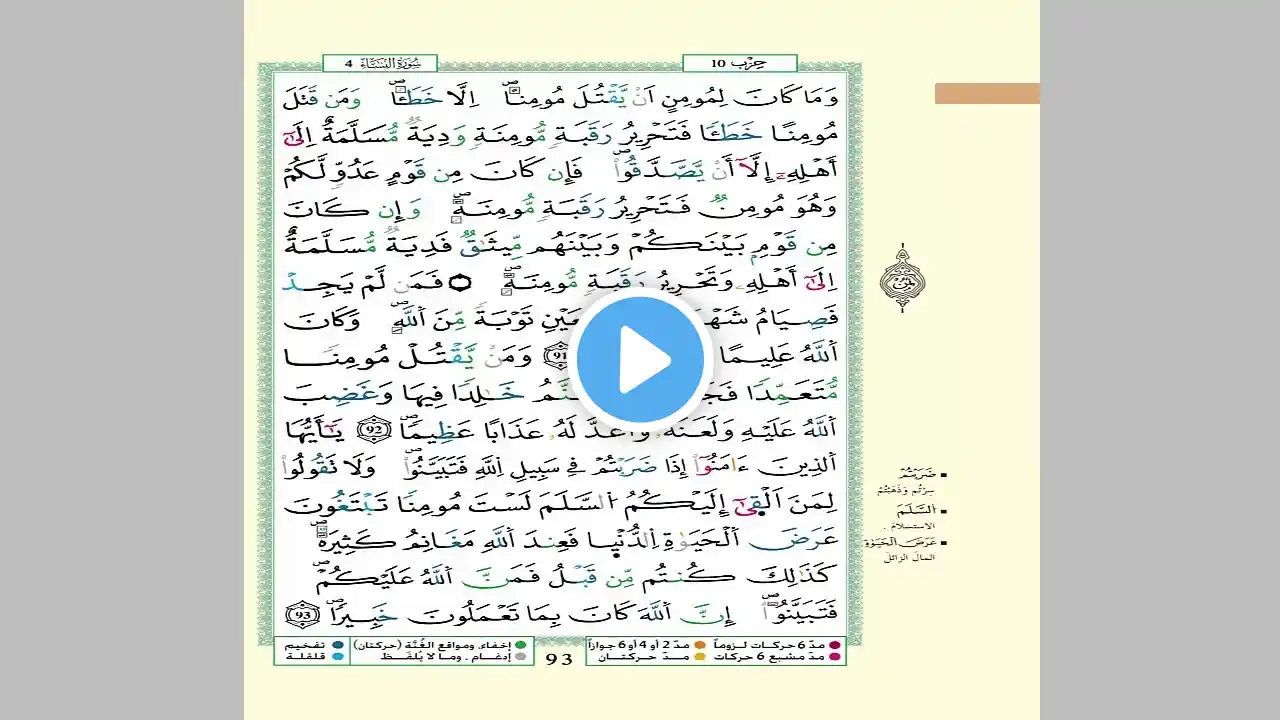 سُورَةُ النِّسَاءِ 4
حِزْب 10
وَمَا كَانَ لِمُومِنٍ اَنْ يَّقْتُلَ مُومِناً اِلَّا خَطَـٔاً وَمَن قَتَلَ
مُومِنًا خَطَـًٔا فَتَحْرِيرُ رَقَبَةٍ مُّومِنَةٍ وَدِيَةٌ مُّسَلَّمَةٌ اِلَىٰٓ
أَهْلِهِۦٓ إِلَّآ أَنْ يَّصَّدَّقُواْ فَإِن كَانَ مِن قَوْمٍ عَدُوّٖ لَّكُمْ
وَهُوَ مُومِنٌ فَتَحْرِيرُ رَقَبَةٍ مُّومِنَةٍ وَإِن كَانَ
مِن قَوْمِۢ بَيْنَكُمْ وَبَيْنَهُم مِّيثَٰقٌ فَدِيَةٌ مُّسَلَّمَةٌ
اِلَىٰٓ أَهْلِهِۦ وَتَحْرِيرُ رَقَبَةٍ مُّومِنَةٍ فَمَن لَّمْ يَجِدْ
فَصِيَامُ تَوْبَةً مِّنَ اَللَّهِ وَكَانَ
اَللَّهُ عَلِيمًا 91 وَمَنْ يَّقْتُلْ مُومِنًا
مُّتَعَمِّدًا خَٰلِدًا فِيهَا وَغَضِبَ
اَللَّهُ عَلَيْهِ وَلَعَنَهُۥ وَأَعَدَّ لَهُۥ عَذَابًا عَظِيمًا 92 يَٰٓأَيُّهَا
اَلذِينَ ءَامَنُوٓاْ إِذَا ضَرَبْتُمْ فِي سَبِيلِ اِللَّهِ فَتَبَيَّنُواْ وَلَا تَقُولُواْ
لِمَنَ اَلْقِىٰٓ إِلَيْكُمُ اُلسَّلَمَ لَسْتَ مُومِنًا تَبْتَغُونَ
عَرَضَ اَلْحَيَوٰةِ اِلدُّنْيِا فَعِندَ اَللَّهِ مَغَانِمُ كَثِيرَةٌ
كَذَٰلِكَ كُنتُم مِّن قَبْلُ فَمَنَّ اَللَّهُ عَلَيْكُمْ
فَتَبَيَّنُواْ إِنَّ اَللَّهَ كَانَ بِمَا تَعْمَلُونَ خَبِيرًا 93
ثُمُن
ضَرَبْتُمْ
سِرْتُم وَذَهَبْتُمْ
اَلسَّلَمَ
الاستسلامَ .
عَرَضَ اَلْحَيَوٰةِ
المالَ الزائلَ
مدّ 6 حركات لـزوماً
مدّ 2 أو 4 أو 6 جوازاً
مدّ مشبع 6 حركات
مـدّ حركتـان
93
إخفاء، ومواقع الغُنَّة (حركتان)
تفخيم
إدغـام ، ومـا لا يُلفَـظ
قلقلة